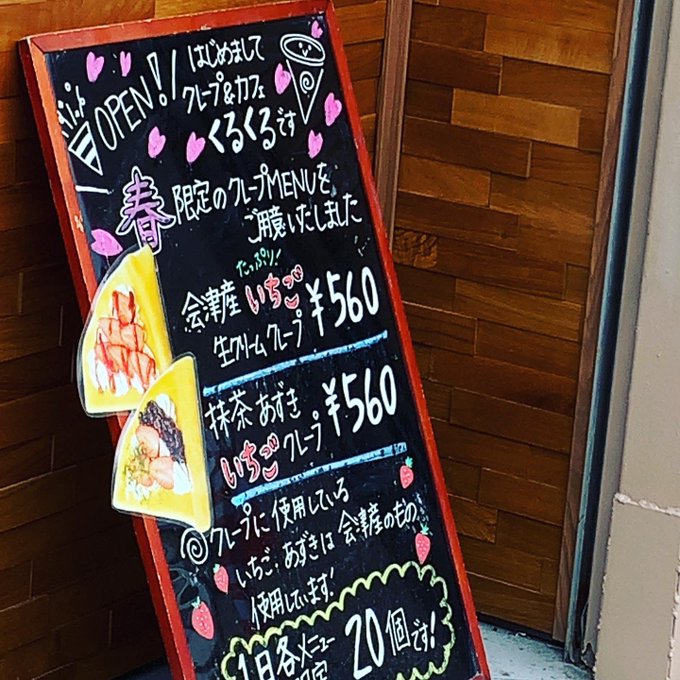 OPEN!!
はじめまして
クレープ&カフェ
くるくるです
春限定のクレープMENUを
ご用意いたしました
たっぷり!
会津産いちご
生クリームクレープ ¥560
抹茶あずき
いちごクレープ ¥560
クレープに使用している
いちご・あずきは会津産のもの
使用しています!
1日各メニュー
限定 20個です!